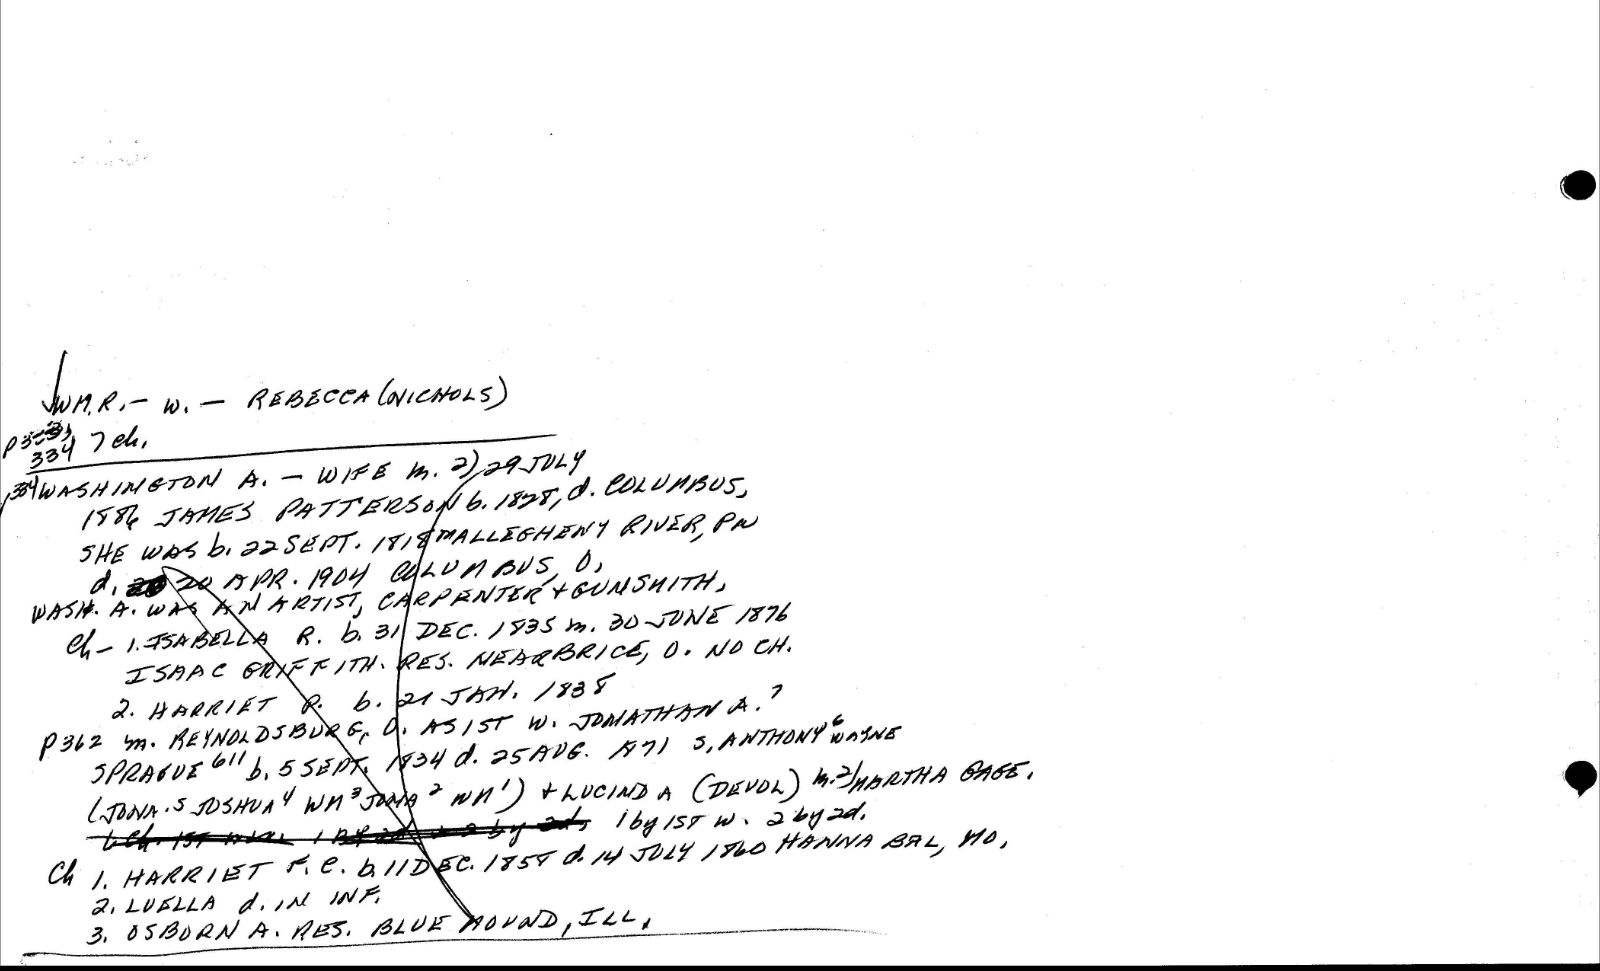 WM. R. — W. — REBECCA (NICHOLS)
P 333,
334 7 ch.
334 WASHINGTON A. — WIFE m. 2) 29 JULY
1886 JAMES PATTERSON b. 1828, d. COLUMBUS,
SHE WAS b. 22 SEPT. 1818 ALLEGHENY RIVER, PN
d. 20 APR. 1904 COLUMBUS, O,
WASH. A. WAS AN ARTIST, CARPENTER + GUNSMITH,
Ch — 1. ISABELLA R. b. 31 DEC. 1835 m. 30 JUNE 1876
ISAAC GRIFFITH. RES. NEAR BRICE, O. NO CH.
2. HARRIET P. b. 21 JAN. 1838
P362 m. REYNOLDSBURG, O. AS 1ST W. JONATHAN A.7
SPRAGUE 611 b. 5 SEPT. 1834 d. 25 AUG. 1871 S, ANTHONY6 WAYNE
(JONA.5 JOSHUA4 WM3 JONA2 WM1) + LUCINDA (DEVOL) m. 2) MARTHA GAGE.
1 by 1ST W. 2 by 2d.
Ch 1. HARRIET F. C. b. 11 DEC. 1858 d. 14 JULY 1860 HANNABAL, MO.
2. LUELLA d. IN INF.
3. OSBORN A. RES. BLUE MOUND, ILL.